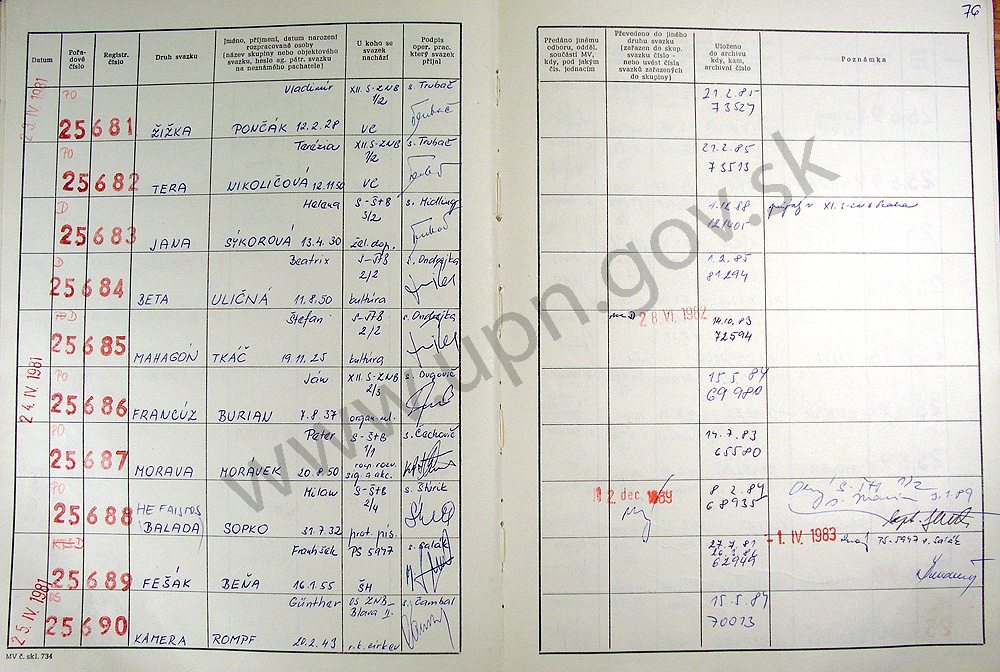 76
Datum
Pořa-
dové
číslo
Registr.
číslo
Druh svazku
Jméno, příjmení, datum narození
rozpracované osoby
(název skupiny nebo objektového
svazku, heslo ag. pátr. svazku
na neznámého pachatele)
U koho se
svazek
nachází
Podpis
oper. prac.
který svazek
přijal
Předáno jinému
odboru, odděl.
součásti MV,
kdy, pod jakým
čís. jednacím
Převedeno do jiného
druhu svazku
(zařazen do skup.
svazku číslo -
nebo uvést čísla
svazků zařazených
do skupiny)
Uloženo
do archivu
kdy, kam,
archivní číslo
Poznámka
23. IV 1981
PO
25681
ŽIŽKA
Vladimír
PONČÁK 12.2.28
XII. S-ZNB
1/2
VC
s. Trubač
21.2.85
73527
PO
25682
TERA
Terézia
NIKOLIČOVÁ 12.11.50
XII. S-ZNB
1/2
VC
s. Trubač
21.2.85
73513
D
25683
JANA
Helena
SÝKOROVÁ 13.4.30
S-ŠtB
3/2
žel. dop.
s. Midling
1.12.88
121405
XI. S-ZNB Praha
D
25684
BETA
Beatrix
ULIČNÁ 11.8.50
S-ŠtB
2/2
kultúra
s. Ondrejka
1.2.85
81294
D
25685
MAHAGÓN
Štefan
TKÁČ 19.11.25
S-ŠtB
2/2
kultúra
s. Ondrejka
na D 28 VI. 1982
14.10.83
72594
24. IV 1981
PO
25686
FRANCÚZ
Ján
BURIAN 7.8.37
XII. S-ZNB
2/3
s. Dugovič
15.5.84
69980
PO
25687
MORAVA
Peter
MORAVEK 20.8.50
S-ŠtB
1/1
s. Čachovič
14.7.83
65580
PO
25688
HEFAISTOS
(BALADA)
Milan
SOPKO 31.7.32
S-ŠtB
2/4
prot. pís.
s. Štúrik
12 dec. 1989
8.2.84
68935
3.1.89
25689
FEŠÁK
František
BEŇA 16.1.55
PS 5947
ŠH
s. Salák
27.7.81
62949
-1. IV. 1983
TS-5947 s. Salák
25. IV 1981
OS
25690
KAMERA
Günther
ROMPF 20.2.43
OS ZNB-
Blava II.
r.k. cirkev
s. Čambal
15.5.84
70013
MV č. skl. 734
www.upn.gov.sk